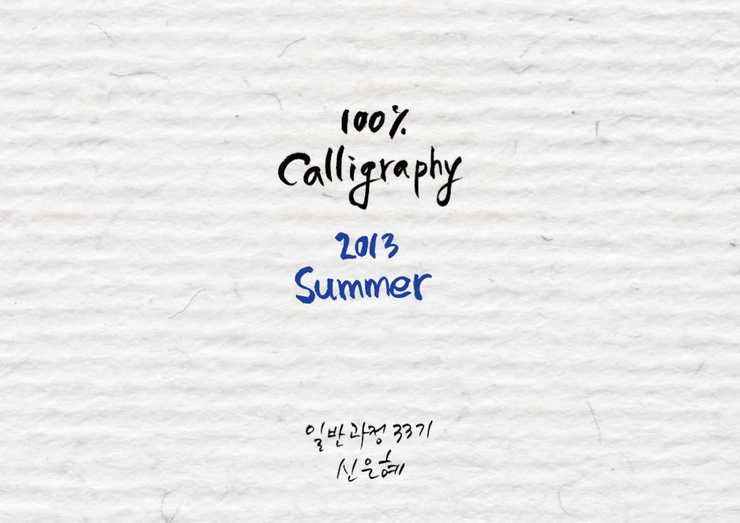 100%
Calligraphy
2013
Summer
일반과정 33기
신은혜